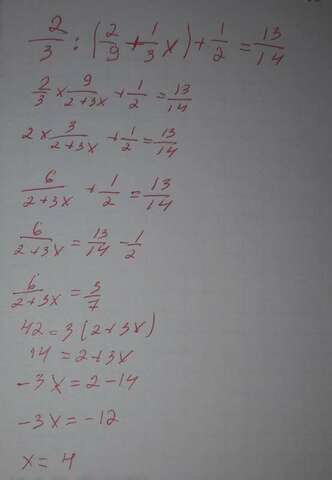 2/3 : (2/9 + 1/3 x) + 1/2 = 13/14
2/3 × 9/2+3x + 1/2 = 13/14
2 × 3/2+3x + 1/2 = 13/14
6/2+3x + 1/2 = 13/14
6/2+3x = 13/14 - 1/2
6/2+3x = 3/7
42 = 3(2+3x)
14 = 2+3x
-3x = 2-14
-3x = -12
x = 4